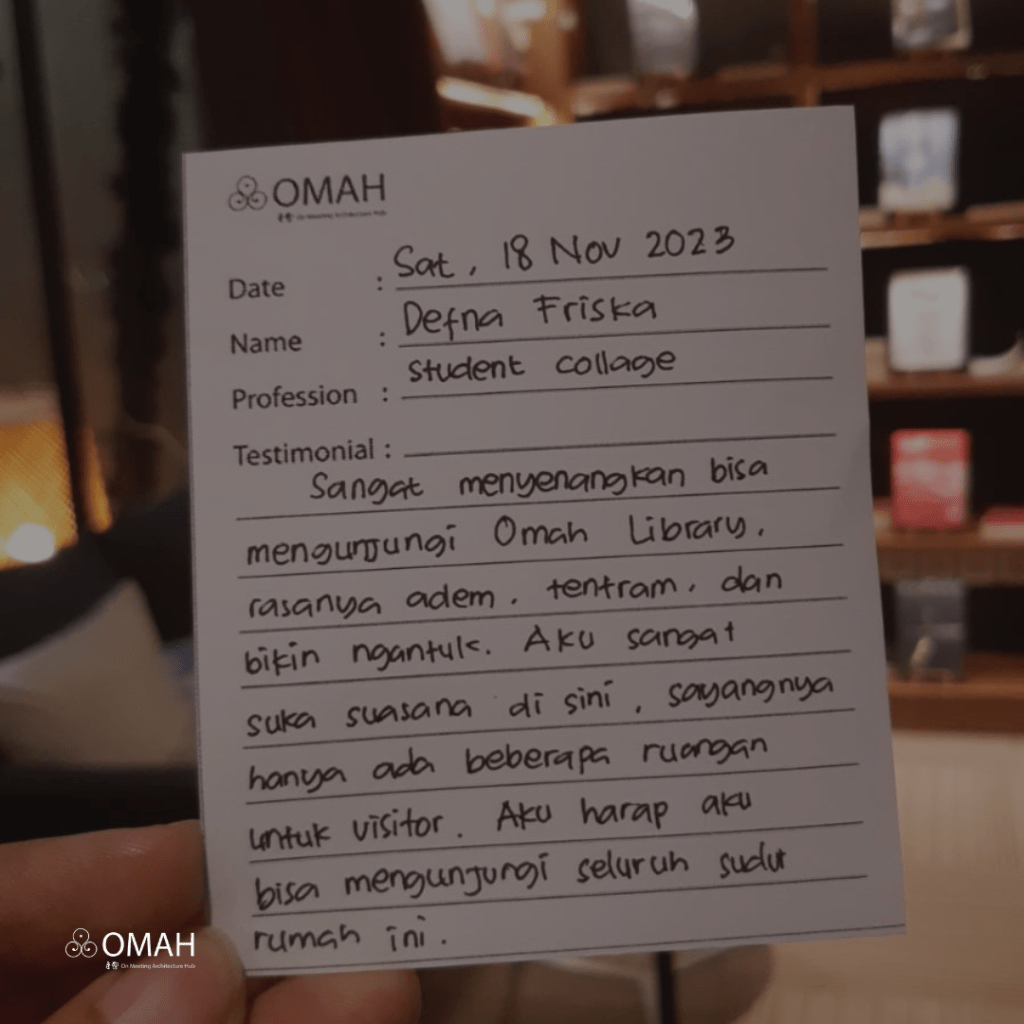 OMAH
On Meeting Architecture Hub
Date : Sat, 18 Nov 2023
Name : Defna Friska
Profession : Student collage
Testimonial :
Sangat menyenangkan bisa
mengunjungi Omah Library,
rasanya adem, tentram, dan
bikin ngantuk. Aku sangat
suka suasana di sini, sayangnya
hanya ada beberapa ruangan
untuk visitor. Aku harap aku
bisa mengunjungi seluruh sudut
rumah ini.
OMAH
On Meeting Architecture Hub